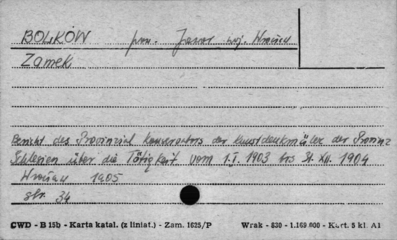 BOLKÓW pow. Jawor woj. Wrocław
Zamek
Bericht des Provinzial Konservators der Kunstdenkmäler der Provinz
Schlesien über die Tätigkeit vom 1.I. 1903 bis 31. XII. 1904
Wrocław 1905
str. 34
CWD - B 15b - Karta katal. (z liniat.) - Zam. 1625/P Wrak - 530 - 1.169 000 - Kart. 5 kl. A1